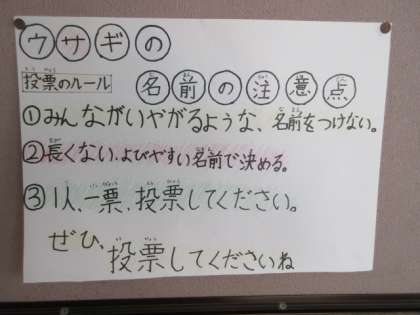 ウサギの
投票のルール
名前の注意点
①みんながいやがるような、名前をつけない。
②長くない、よびやすい名前で決める。
③1人、一票、投票してください。
ぜひ、投票してくださいね